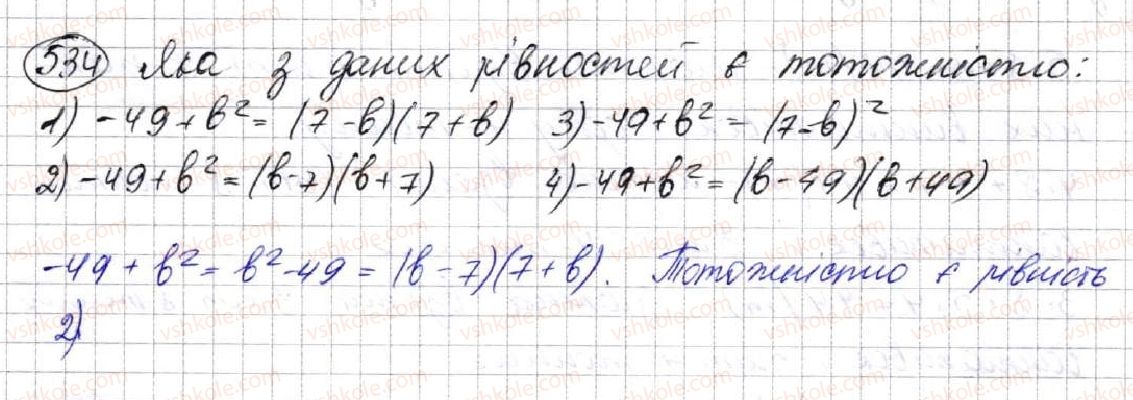 534 Яка з даних рівностей є тотожністю:
1) -49+b²= (7-b)(7+b) 3) -49+b² = (7-b)²
2) -49+b²=(b-7)(b+7) 4) -49+b²=(b-49)(b+49)
-49 + b²= b²-49 = (b-7)(7+b). Тотожністю є рівність
2)